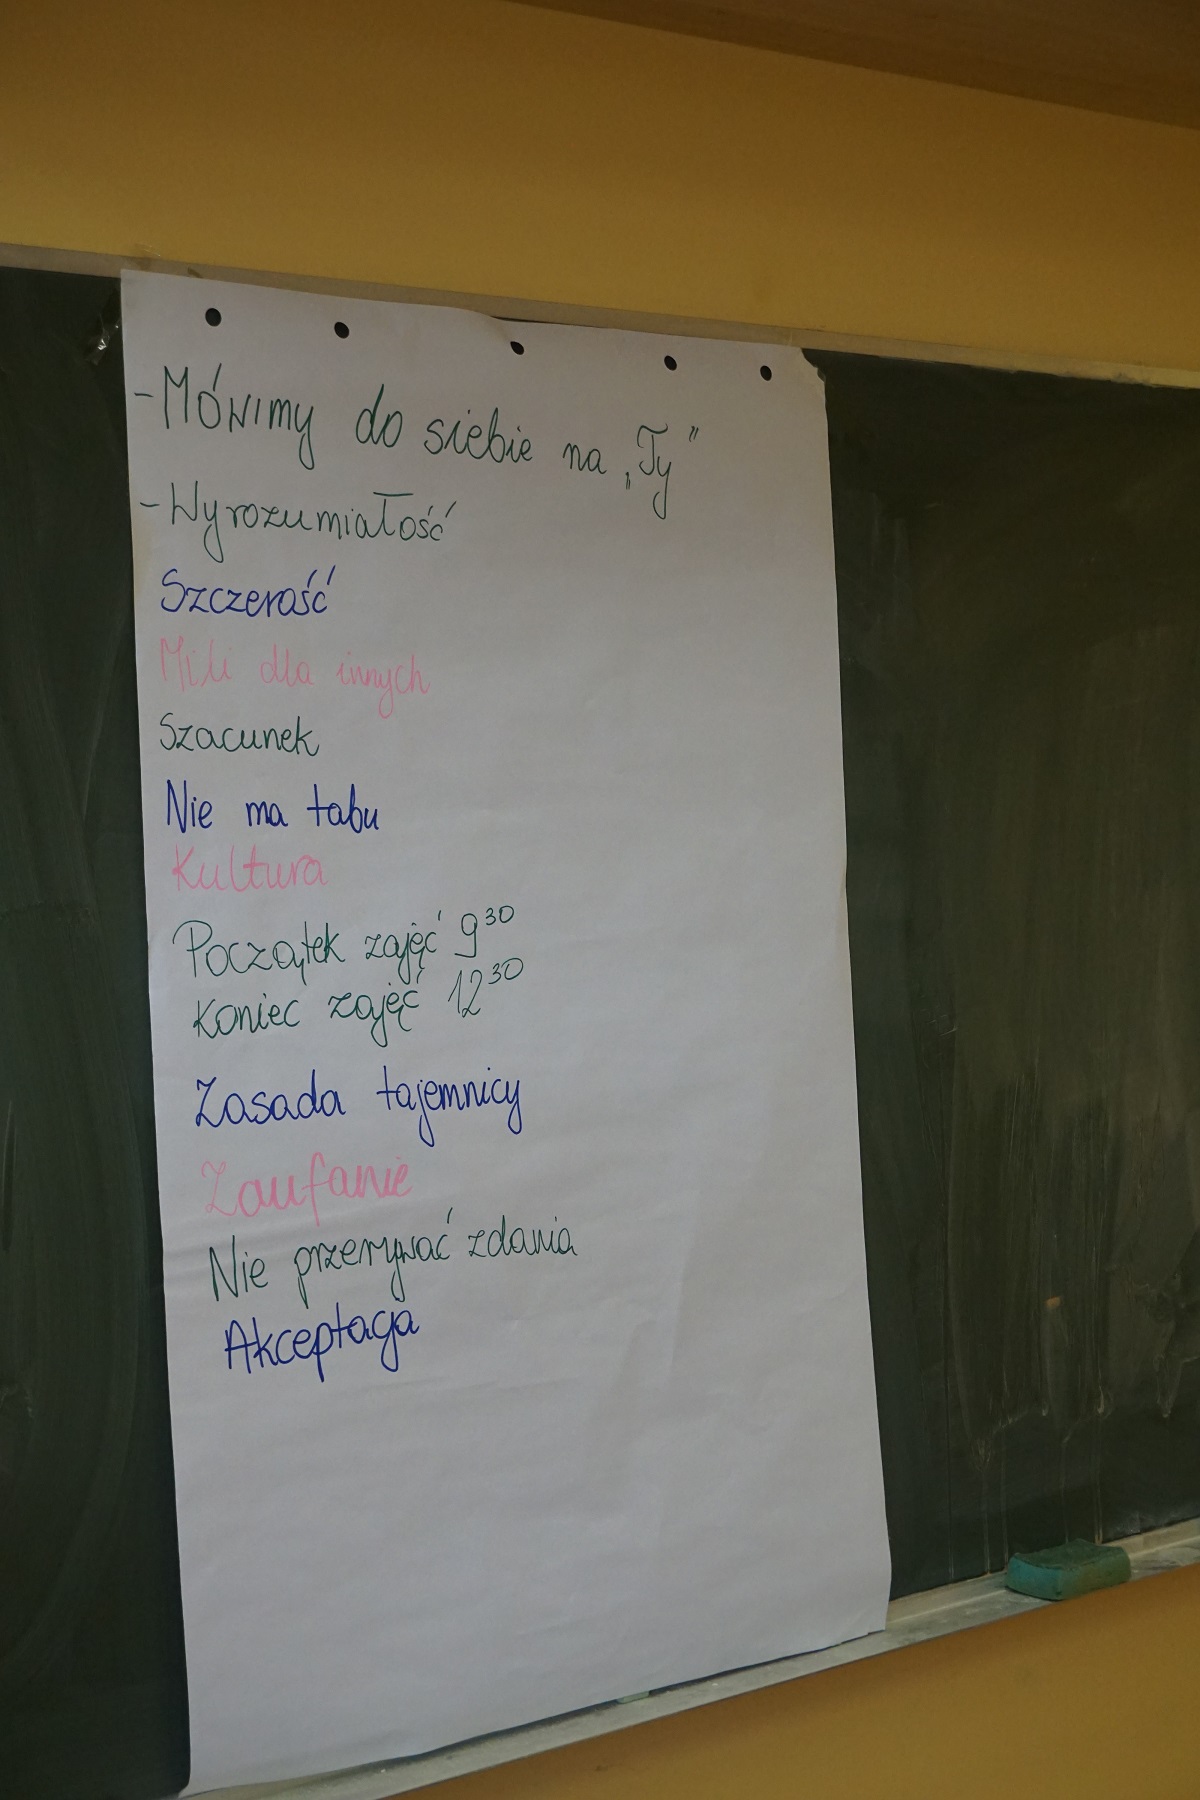 - Mówimy do siebie na „Ty"
- Wyrozumiałość
Szczerość
Mili dla innych
Szacunek
Nie ma tabu
Kultura
Początek zajęć 9³⁰
Koniec zajęć 12³⁰
Zasada tajemnicy
Zaufanie
Nie przerywać zdania
Akceptacja